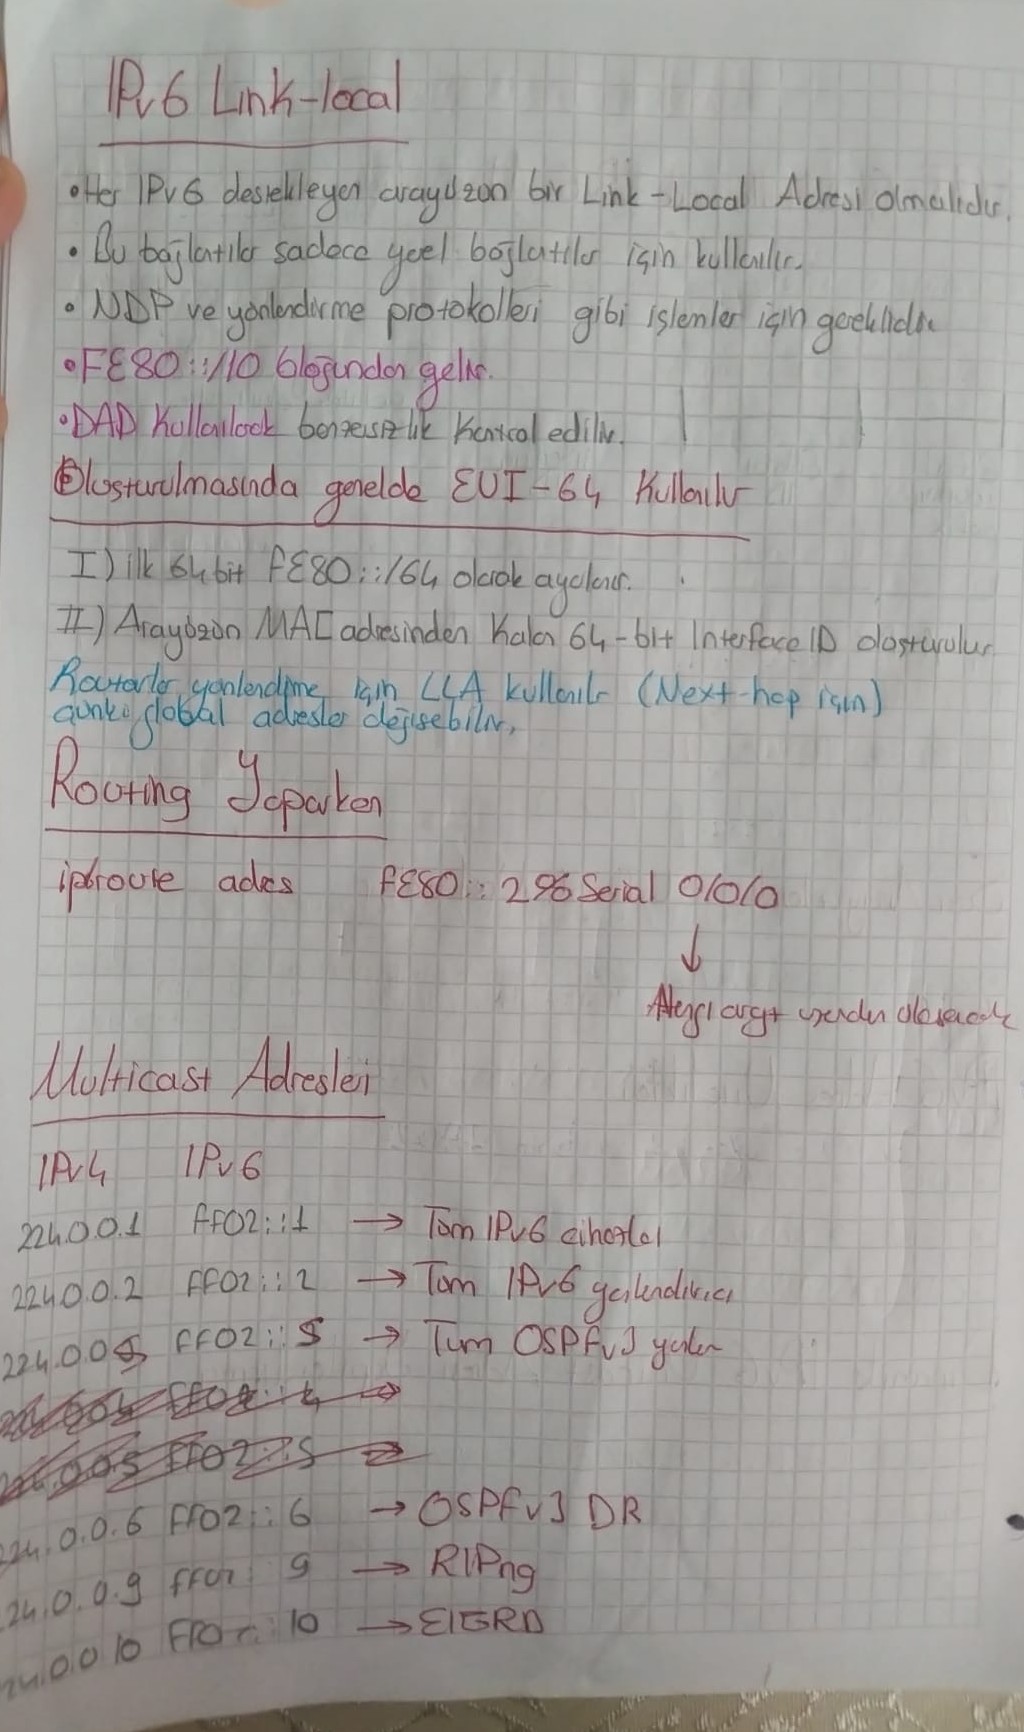 IPv6 Link-local
• Her IPv6 destekleyen arayüzün bir Link-Local Adresi olmalıdır.
• Bu bağlantılar sadece yerel bağlantılar için kullanılır.
• NDP ve yönlendirme protokolleri gibi işlemler için gereklidir
• FE80::/10 bloğundan gelir.
• DAD Kullanılarak benzersizlik Kontrol edilir.
Oluşturulmasında genelde EUI-64 Kullanılır
I) ilk 64 bit FE80::/64 olarak ayarlanır.
II) Arayüzün MAC adresinden Kalan 64-bit Interface ID oluşturulur
Routerlar yönlendirme için LLA kullanılır (Next-hop için)
çünkü global adresler değişebilir.
Routing Yaparken
route adres FE80::2%Serial 0/0/0
üzerden
Multicast Adresleri
IPv4 IPv6
224.0.0.1 FF02::1 → Tüm IPv6 cihazlar
224.0.0.2 FF02::2 → Tüm IPv6
224.0.0.5 FF02::5 → Tüm OSPFv3
24.0.0.6 FF02::6 → OSPFv3 DR
24.0.0.9 9 → RIPng
0.0.10 10 → EIGRP